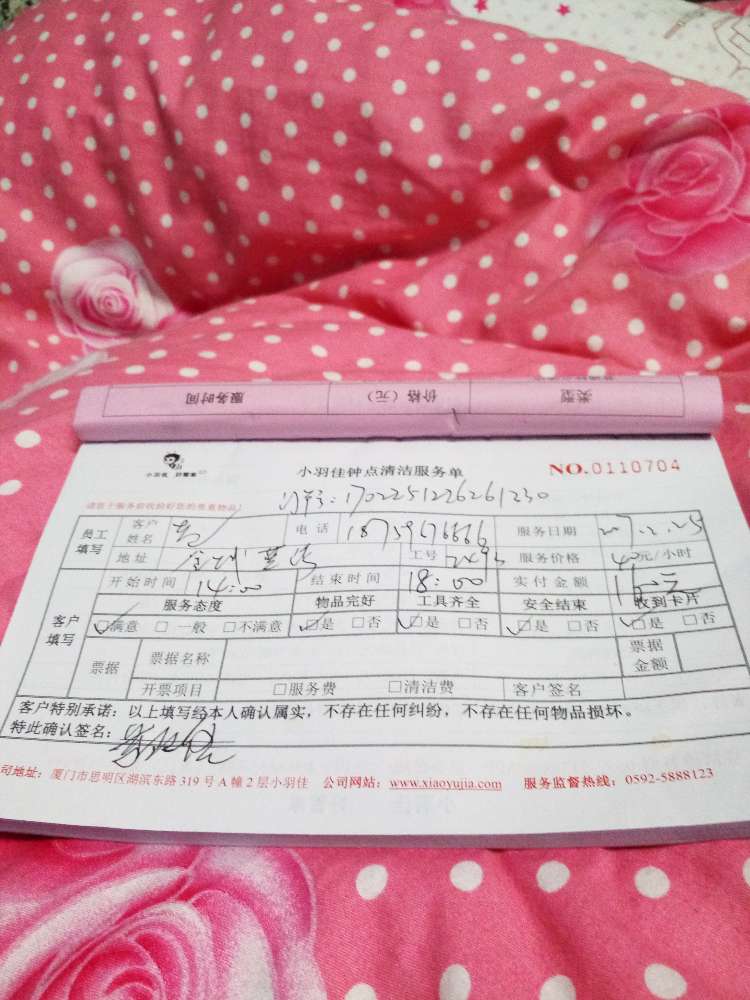 类型 价格（元） 服务时间
小羽佳 好管家
小羽佳钟点清洁服务单 NO.0110704
订单号:1702251226261230
员工填写 客户姓名 电话 18759676666 服务日期
地址 工号 服务价格 40元/小时
开始时间 14:00 结束时间 18:00 实付金额 160元
客户填写 服务态度 物品完好 工具齐全 安全结束 收到卡片
☑满意 □一般 □不满意 ☑是 □否 ☑是 □否 ☑是 □否 ☑是 □否
票据 票据名称 票据金额
开票项目 □服务费 □清洁费 客户签名
客户特别承诺：以上填写经本人确认属实，不存在任何纠纷，不存在任何物品损坏。
特此确认签名：
司地址：厦门市思明区湖滨东路319号A幢2层小羽佳 公司网站：www.xiaoyujia.com 服务监督热线：0592-5888123